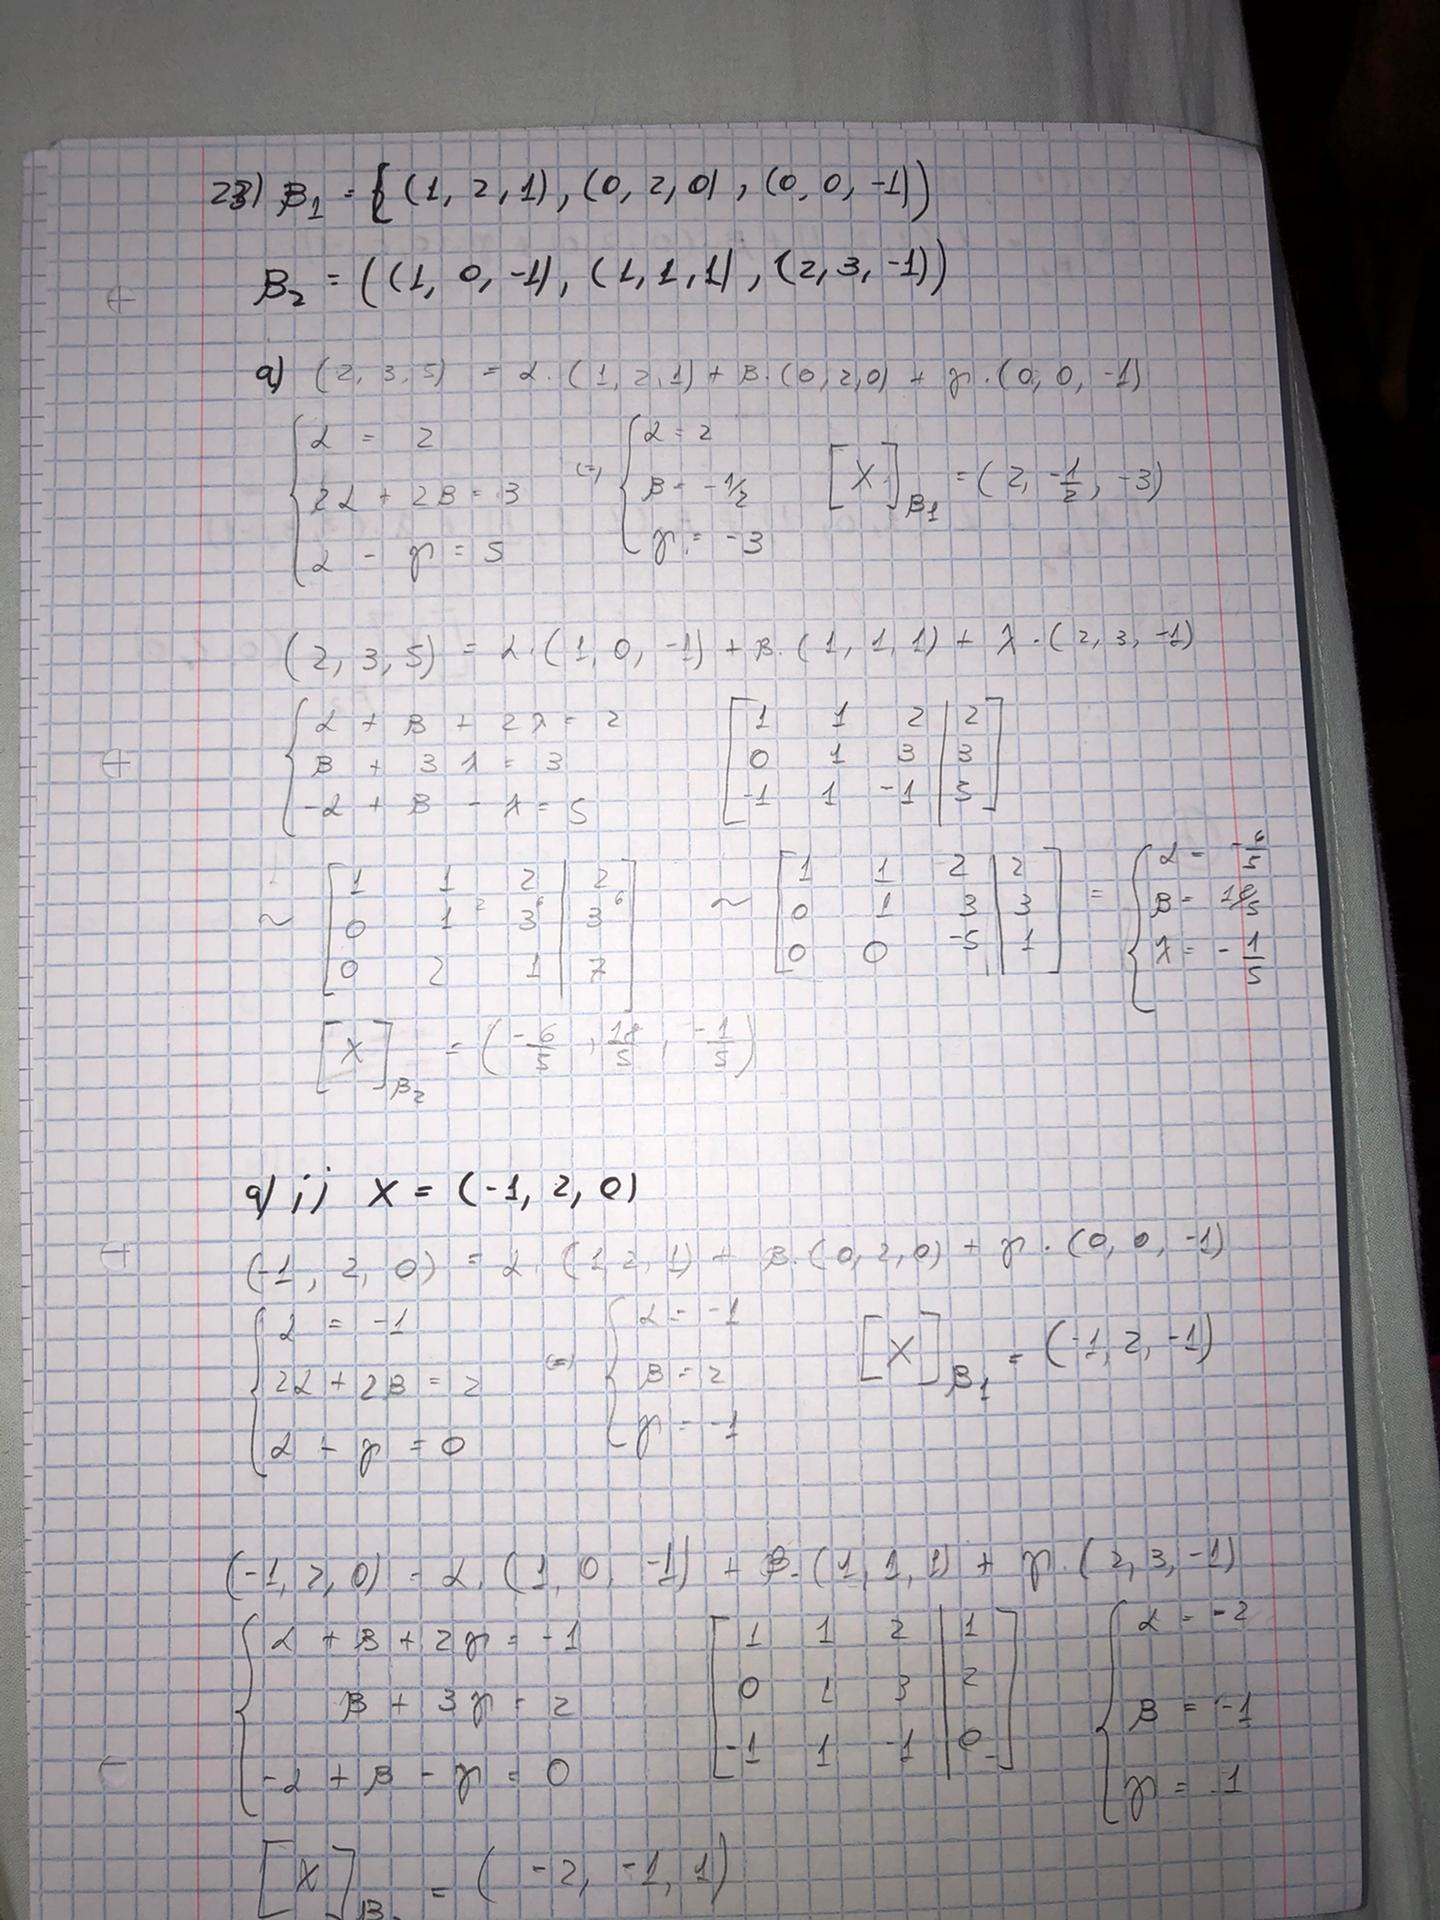 23) B₁ = {(1, 2, 1), (0, 2, 0), (0, 0, -1))
B₂ = ((1, 0, -1), (1, 1, 1), (2, 3, -1))
a) (2, 3, 5) = α · (1, 2, 1) + β · (0, 2, 0) + γ · (0, 0, -1)
{ α = 2
2α + 2β = 3
α - γ = 5
(=) { α = 2
β = -1/2
γ = -3
[X]B₁ = (2, -1/2, -3)
(2, 3, 5) = α · (1, 0, -1) + β · (1, 1, 1) + λ · (2, 3, -1)
{ α + β + 2λ = 2
β + 3λ = 3
-α + β - λ = 5
[ 1 1 2 | 2 ]
[ 0 1 3 | 3 ]
[ -1 1 -1 | 5 ]
~ [ 1 1 2 | 2 ]
[ 0 1² 3⁶ | 3⁶ ]
[ 0 2 1 | 7 ]
~ [ 1 1 2 | 2 ]
[ 0 1 3 | 3 ]
[ 0 0 -5 | 1 ]
= { α = -6/5
β = 18/5
λ = -1/5
[X]B₂ = (-6/5, 18/5, -1/5)
a) ii) X = (-1, 2, 0)
(-1, 2, 0) = α · (1, 2, 1) + β · (0, 2, 0) + γ · (0, 0, -1)
{ α = -1
2α + 2β = 2
α - γ = 0
(=) { α = -1
β = 2
γ = -1
[X]B₁ = (-1, 2, -1)
(-1, 2, 0) = α · (1, 0, -1) + β · (1, 1, 1) + γ · (2, 3, -1)
{ α + β + 2γ = -1
β + 3γ = 2
-α + β - γ = 0
[ 1 1 2 | 1 ]
[ 0 1 3 | 2 ]
[ -1 1 -1 | 0 ]
{ α = -2
β = -1
γ = 1
[X]B = (-2, -1, 1)